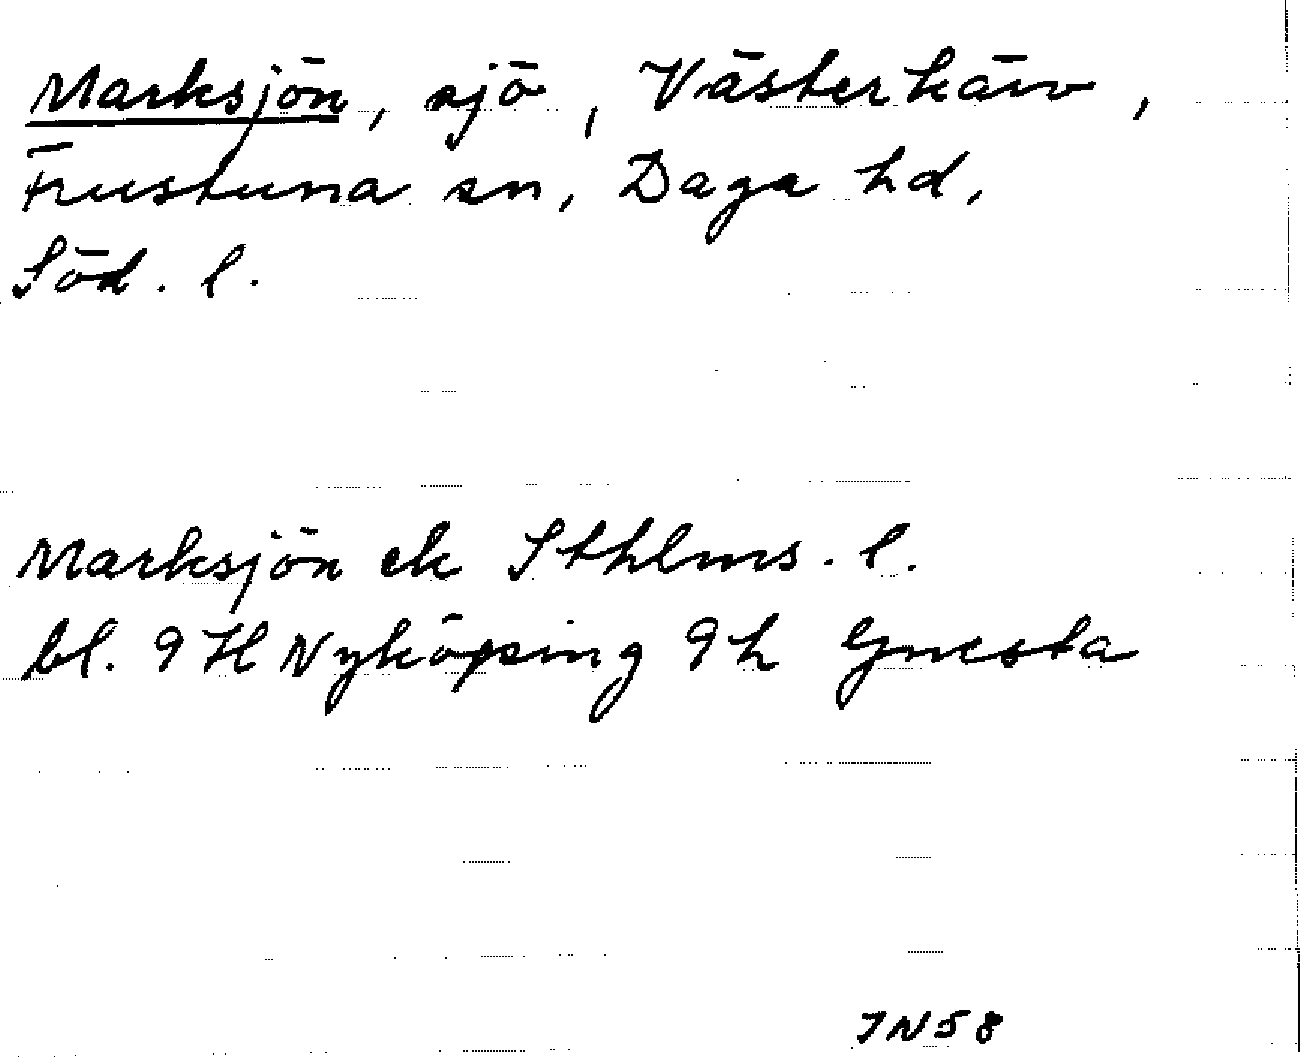 Marksjön, sjö, Västerkärv,
Frustuna sn, Daga hd,
Söd. l.
Marksjön ek Sthlms. l.
bl. 9 H Nyköping 9h Gnesta
JN58